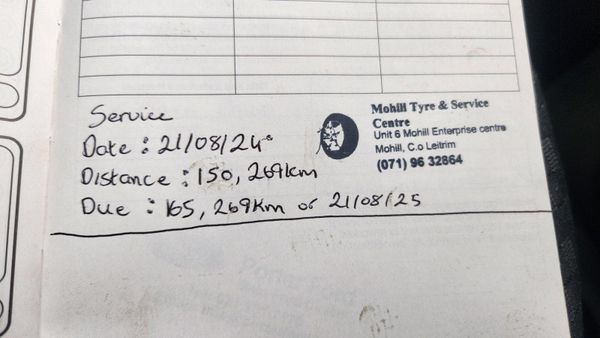 Service
Date : 21/08/24
Distance : 150,269km
Due : 165,269km or 21/08/25
Mohill Tyre & Service
Centre
Unit 6 Mohill Enterprise centre
Mohill, C.o Leitrim
(071) 96 32864